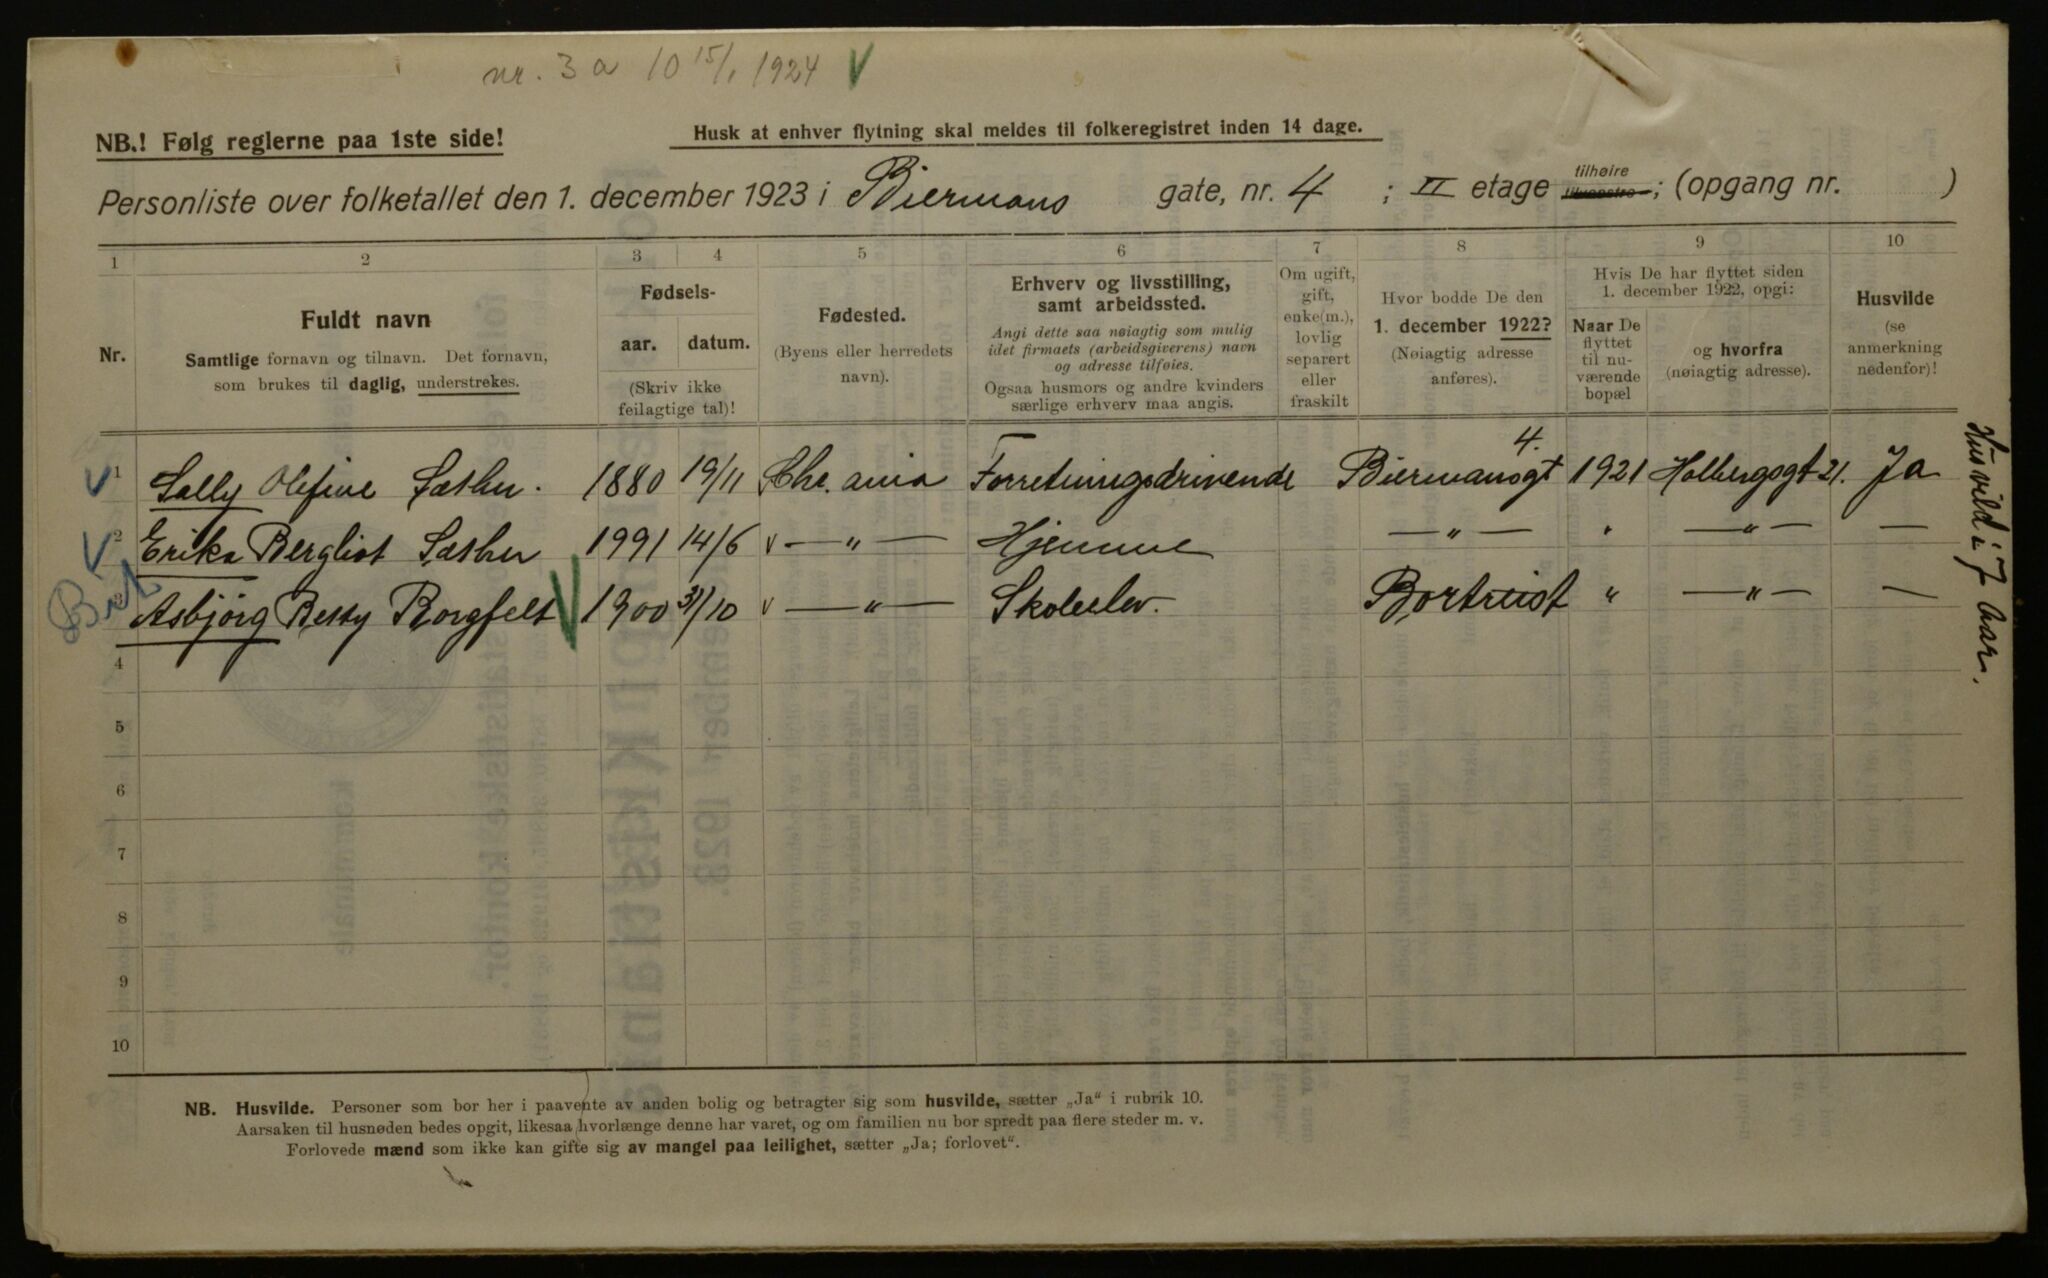 nr. 3 a 10 15/1 1924 V
NB.! Følg reglerne paa 1ste side!
Husk at enhver flytning skal meldes til folkeregistret inden 14 dage.
Personliste over folketallet den 1. december 1923 i Biermans gate, nr. 4 ; II etage tilhøire tilvenstre; (opgang nr. )
1 2 3 4 5 6 7 8 9 10
Nr.
Fuldt navn
Samtlige fornavn og tilnavn. Det fornavn,
som brukes til daglig, understrekes.
Fødsels-
aar. datum.
(Skriv ikke
feilagtige tal)!
Fødested.
(Byens eller herredets
navn).
Erhverv og livsstilling,
samt arbeidssted.
Angi dette saa nøiagtig som mulig
idet firmaets (arbeidsgiverens) navn
og adresse tilføies.
Ogsaa husmors og andre kvinders
særlige erhverv maa angis.
Om ugift,
gift,
enke(m.),
lovlig
separert
eller
fraskilt
Hvor bodde De den
1. december 1922?
(Nøiagtig adresse
anføres).
Hvis De har flyttet siden
1. december 1922, opgi:
Naar De
flyttet
til nu-
værende
bopæl
og hvorfra
(nøiagtig adresse).
Husvilde
(se
anmerkning
nedenfor)!
V 1 Sally Olefine Sæther. 1880 19/11 Chr. ania Forretningsdrivende Biermansgt 4. 1921 Holbergsgt 21. Ja
V 2 Erika Bergliot Sæther 1991 14/6 v — " — Hjemme — " — " — " — —
3 Asbjörg Betsy Borgfelt V 1900 31/10 v — " — Skoleelev. Bortreist " — " — —
Husvild i 7 Aar.
4
5
6
7
8
9
10
NB. Husvilde. Personer som bor her i paavente av anden bolig og betragter sig som husvilde, sætter „Ja" i rubrik 10.
Aarsaken til husnøden bedes opgit, likesaa hvorlænge denne har varet, og om familien nu bor spredt paa flere steder m. v.
Forlovede mænd som ikke kan gifte sig av mangel paa leilighet, sætter „Ja; forlovet".